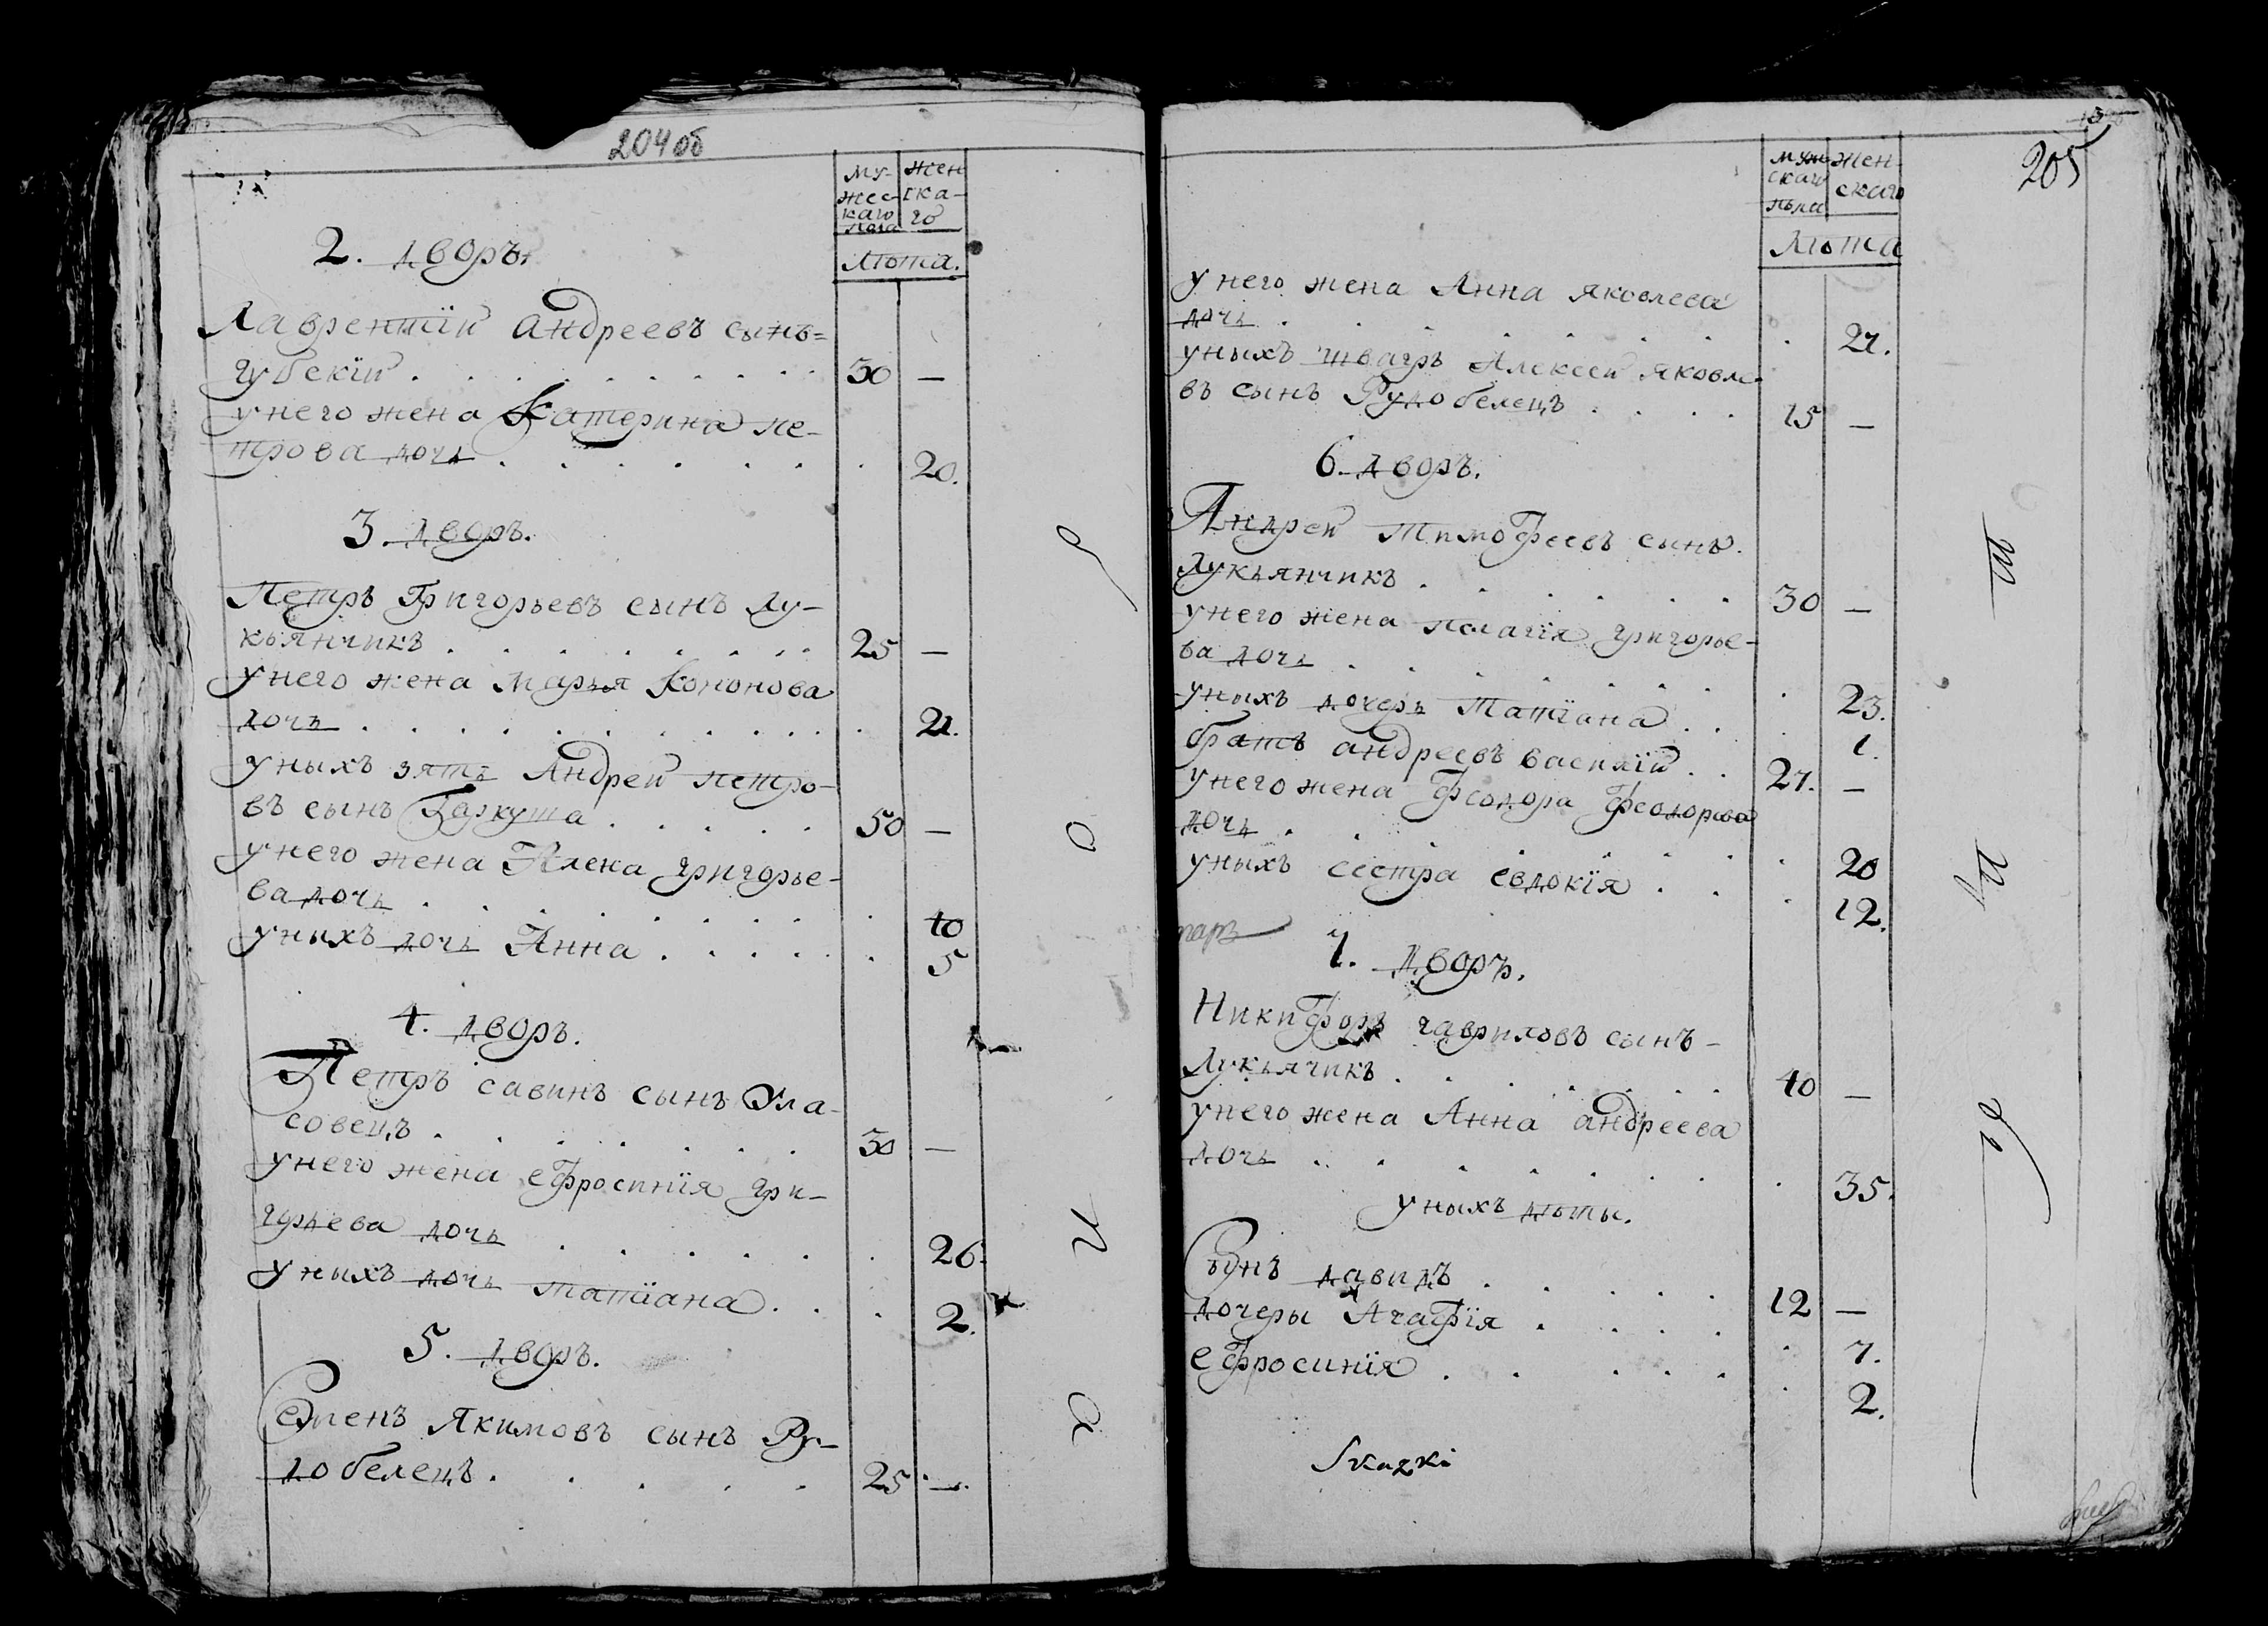 204об
му-
жес-
каго
пола
жен
ска-
го
Лѣта.
2. дворъ.
Лаврентїй андреевъ сынъ=
губскїй . . . . . . . . . . 30 —
у него жена Катерина пе-
трова дочь . . . . . . . 20.
3. дворъ.
Петръ Григорьевъ сынъ лу-
кьянчикъ . . . . . . . . . 25 —
у него жена Марья Кононова
дочь . . . . . . . . . . . 21.
у ныхъ зять Андрей петро-
въ сынъ Гаркуша . . . . . 50 —
у него жена Алена григорье-
ва дочь . . . . . . . . . 40
у ныхъ дочь Анна . . . . . . 5
4. дворъ.
Петръ савинъ сынъ Ула-
совецъ . . . . . . . 30 —
у него жена ефросинїя гри-
горьева дочь . . . . . . 26.
у ныхъ дочь татїана . . . 2.
5. дворъ.
Семенъ Якимовъ сынъ Ру-
добелецъ . . . . . 25 . —.
205
муж-
скаго
пола
жен-
скаго
Лѣта
у него жена Анна яковлева
дочь . . . . . . . . 27.
у ныхъ швагръ Алексей яковле-
въ сынъ Рудобелецъ . . . . 15 —
6. дворъ.
Андрей тимофеевъ сынъ.
Лукьянчикъ . . . . . . 30 —
у него жена пелагїя григорье-
ва дочь . . . . . . . . 23.
у ныхъ дочерь татїана . . . 1.
братъ андреевъ василїй . . 27. —
у него жена феодора феодорова
дочь . . . . . . . . 20
у ныхъ сестра евдокїя . . . 12.
7. дворъ.
Никифоръ гавриловъ сынъ-
Лукьячикъ . . . . . . . 40 —
у него жена Анна андреева
дочь . . . . . . . . 35.
у ныхъ дѣты.
Сынъ давидъ . . . . . 12 —
дочеры Агафїя . . . . . 7.
ефросинїя . . . . . . 2.
Skazki